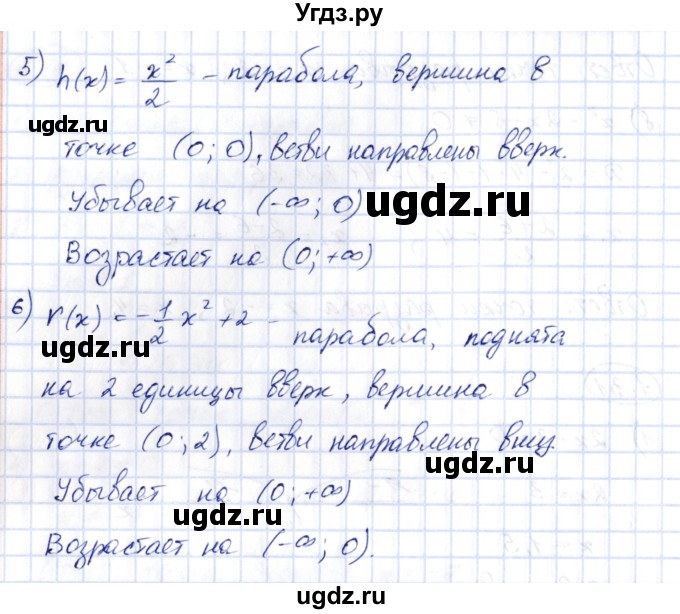 Угдз.ру
5) h(x) = x²/2 – парабола, вершина в
ugdz.ru
точке (0; 0), ветви направлены вверх.
Убывает на (-∞; 0) ugdz.ru
Возрастает на (0; +∞)
6) r(x) = -1/2 x² + 2 – парабола, поднята
ugdz.ru
на 2 единицы вверх, вершина в
точке (0; 2), ветви направлены вниз.
ugdz.ru
Убывает на (0; +∞)
ugdz.ru
Возрастает на (-∞; 0).
ugdz.ru
©ugdz.ru